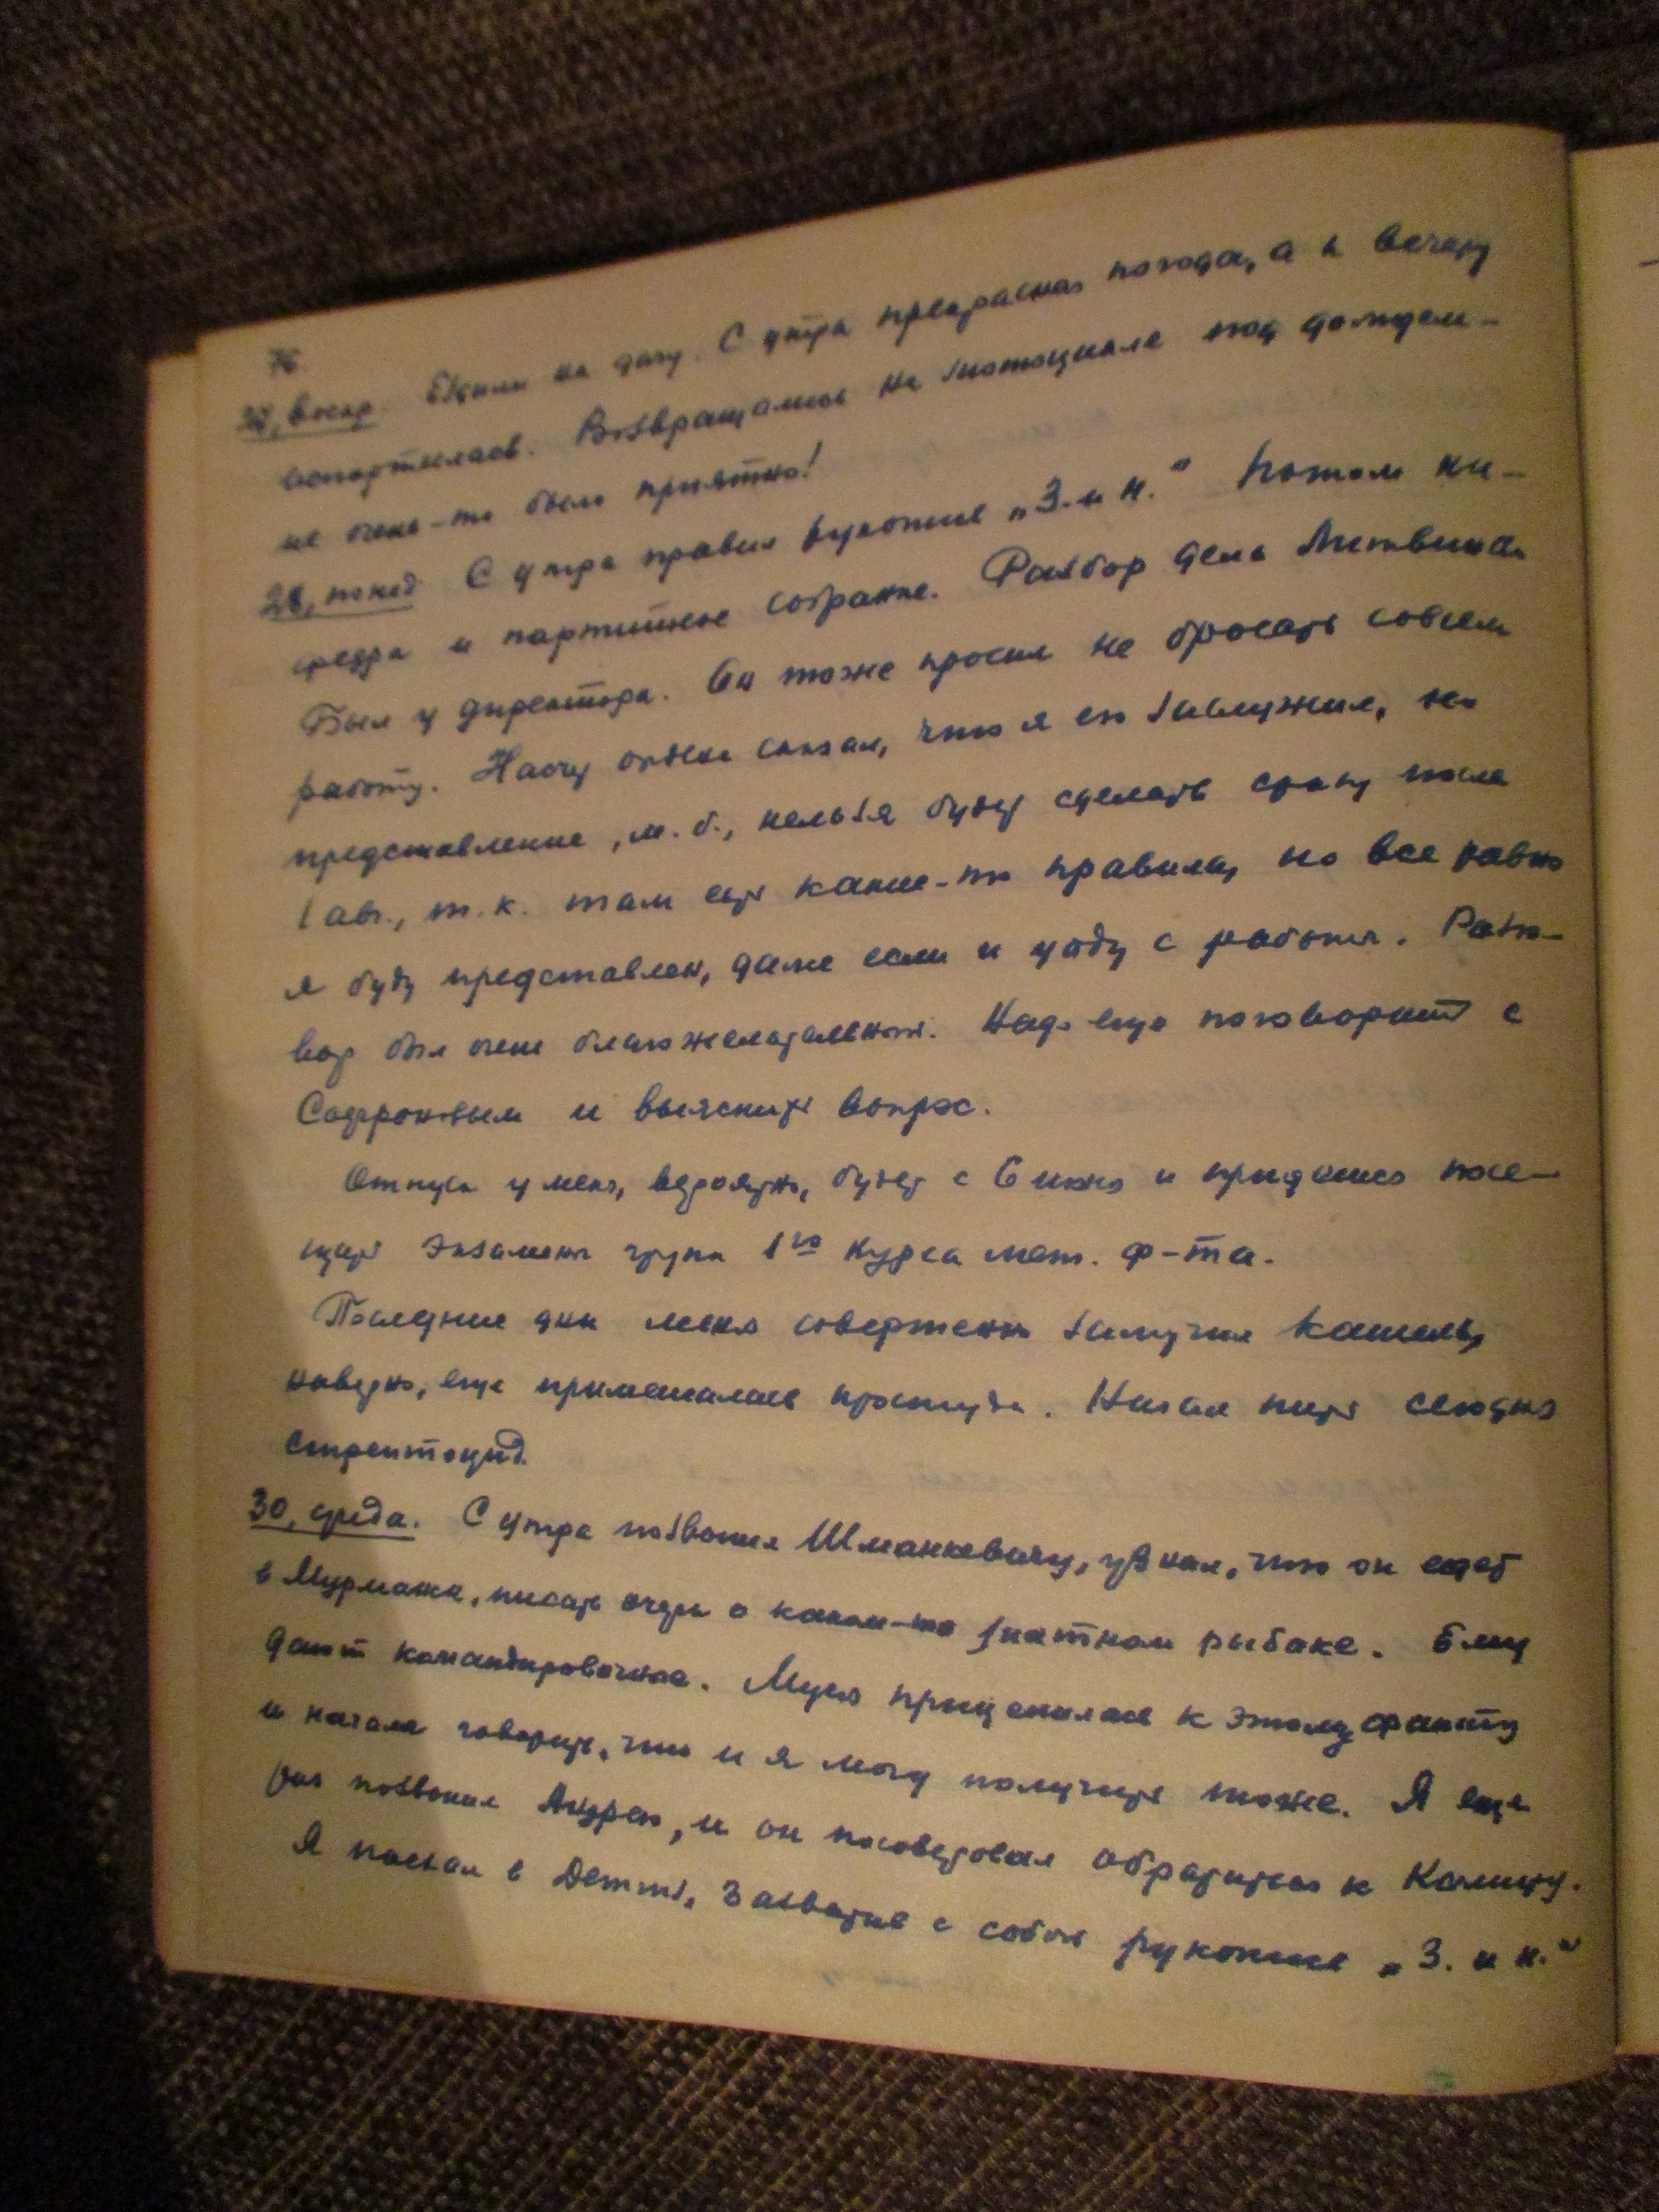 76.
27, воскр. Ездили на дачу. С утра прекрасная погода, а к вечеру
испортилась. Возвращались на мотоцикле под дождем –
не очень-то было приятно!
28, понед. С утра правил рукопись „З. и н.“ Потом ка-
федра и партийное собрание. Разбор дела Литвинова.
Был у директора. Он тоже просил не бросать совсем
работу. Насчет ордена сказал, что я его заслужил, но
представление, м. б., нельзя будет сделать сразу после
1 авг., т. к. там есть какие-то правила, но все равно
я буду представлен, даже если и уйду с работы. Разго-
вор был очень благожелательный. Надо еще поговорить с
и выяснить вопрос.
Отпуск у меня, вероятно, будет с 6 июня и придется посе-
щать экзамены групп 1го курса мет. ф-та.
Последние дни меня совершенно замучил кашель,
наверно, еще примешалась простуда. Начал пить сегодня
стрептоцид.
30, среда. С утра позвонил Шманкевичу, узнал, что он едет
в Мурманск, писать очерк о каком-то знатном рыбаке. Ему
дают командировочные. Муся прицепилась к этому факту
и начала говорить, что и я могу получить тоже. Я еще
раз позвонил Андрею, и он посоветовал обратиться к Камиру.
Я поехал в Детгиз, захватив с собой рукопись „З. и н.“